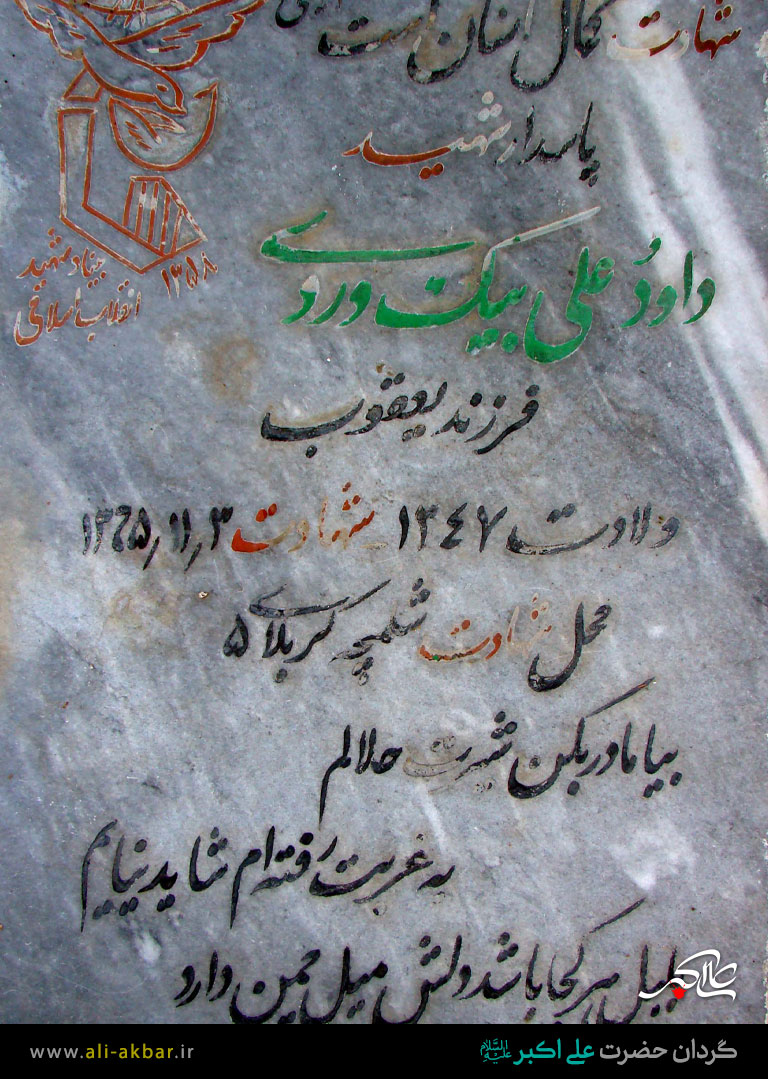 شهادت کمال انسان است
پاسدار شهید
داود علی بیکت وردی
فرزند یعقوب
ولادت ۱۳۴۷ شهادت ۱۳۶۵٫۱۱٫۳
محل شهادت شلمچه کربلای ۵
بیا مادر بکن شیرت حلالم
به غربت رفته ام شاید نیایم
بلبل هر کجا باشد دلش میل چمن دارد
۱۳۵۸
بنیاد شهید
انقلاب اسلامی
علی اکبر
www.ali-akbar.ir
گردان حضرت علی اکبر علیه السلام